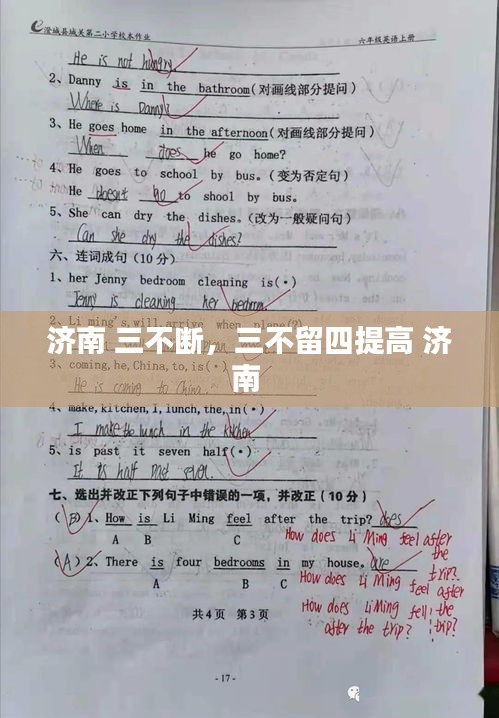 澄城县城关第二小学校本作业 六年级英语上册
He is not hungry.
2、Danny is in the bathroom(对画线部分提问)
Where is Danny?
3、He goes home in the afternoon(对画线部分提问)
When does he go home?
4、He goes to school by bus.(变为否定句)
He doesnt go to shool by bus.
5、She can dry the dishes.(改为一般疑问句)
Can she dry the dishes?
六、连词成句(10分)
1、her Jenny bedroom cleaning is(•)
Jenny is cleaning her bedroom.
2、Li ming's,will arrive when plane(?)
济南 三不断，三不留四提高 济
南
3、coming,he,China,to,is(•)
He is coming to China.
4、make,kitchen,I,lunch,the,in(•)
I make the lunch in the kitchen
5、is past it seven half(•)
It is half past seven.
七、选出并改正下列句子中错误的一项，并改正(10分)
(B)1、How is Li Ming feel after the trip? does
A B C
How does Li Ming feel after the trip?
(A)2、There is four bedrooms in my house. are
A B C
How does Li Ming feel after the trip?
How does LiMing fell after the trip?
共4页 第3页
-17-